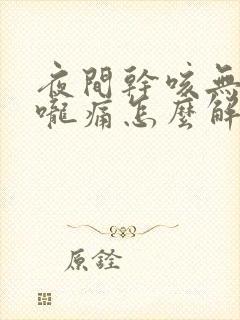 夜間幹咳無
嚨痛怎麼解
原銓